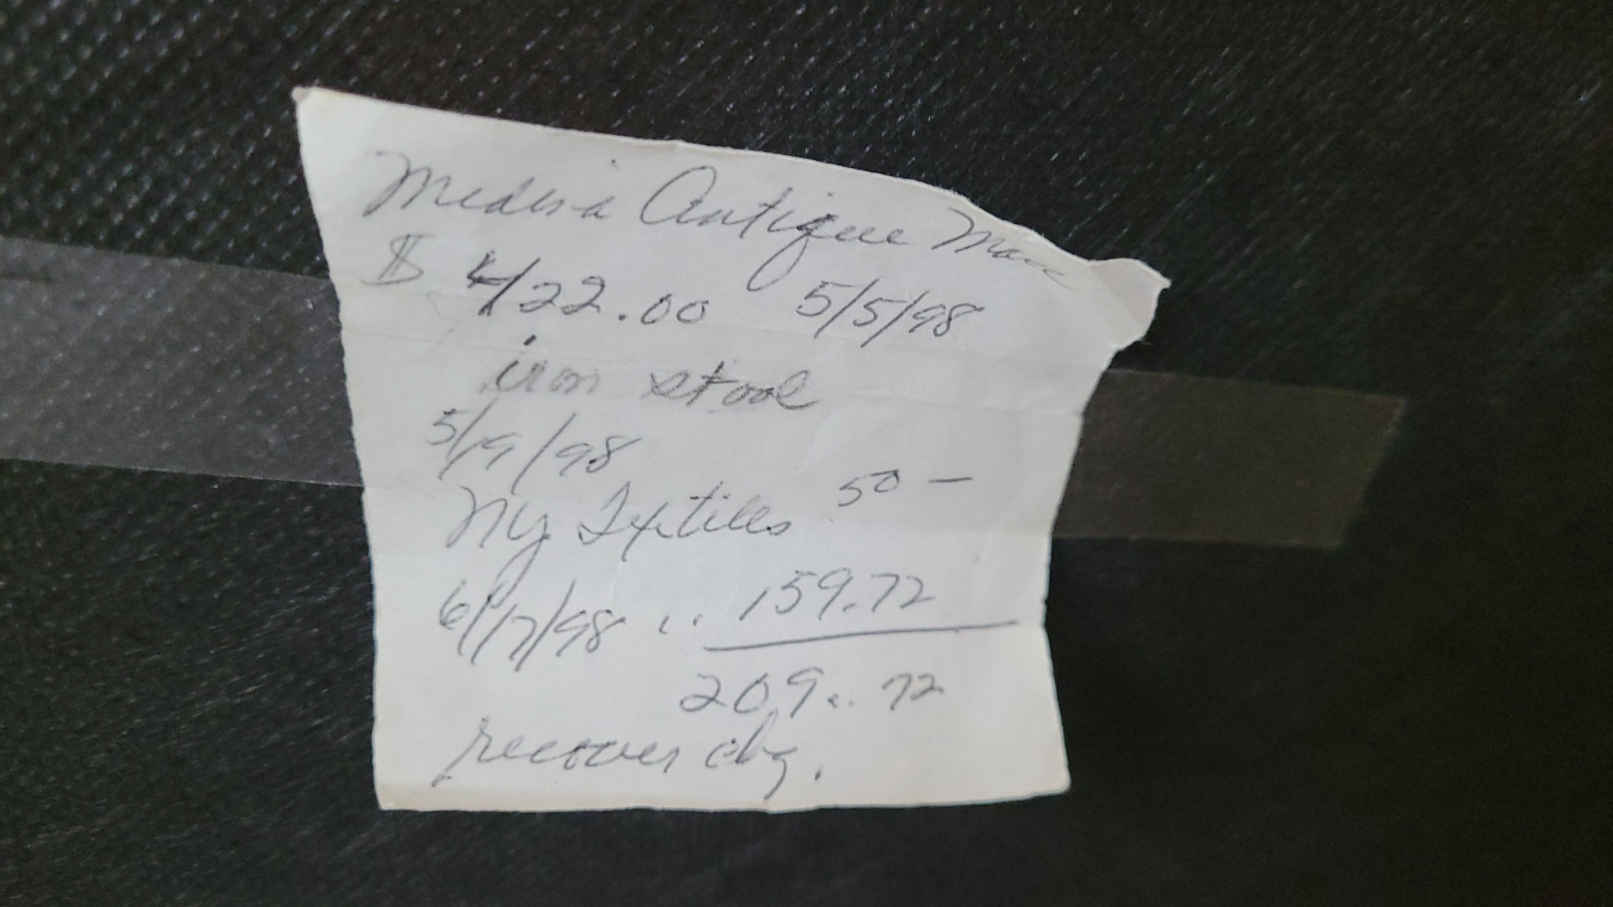 Medina Antique Mall
$ 422.00 5/5/98
iron stool
5/19/98
NY Textiles 50 —
6/17/98 " 159.72
209.72
recover chg.